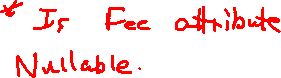 * Is Fee attribute
Nullable.